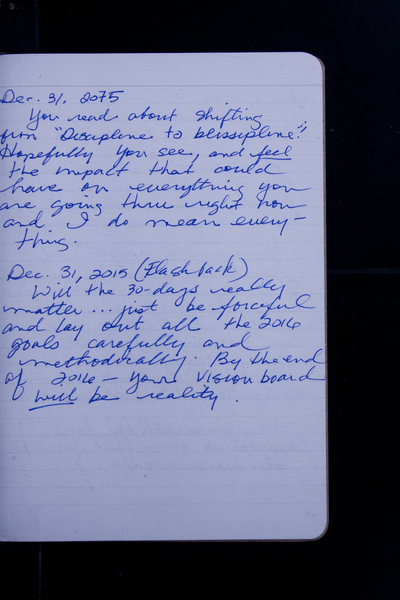 Dec. 31, 2075
You read about shifting
from "Discipline to blissipline".
Hopefully you see, and feel
the impact that could
have on everything you
are going thru right now
and I do mean every-
thing.
Dec. 31, 2015 (Flashback)
Will the 30-days really
matter... just be forceful
and lay out all the 2016
goals carefully and
methodically. By the end
of 2016 - your vision board
will be reality.